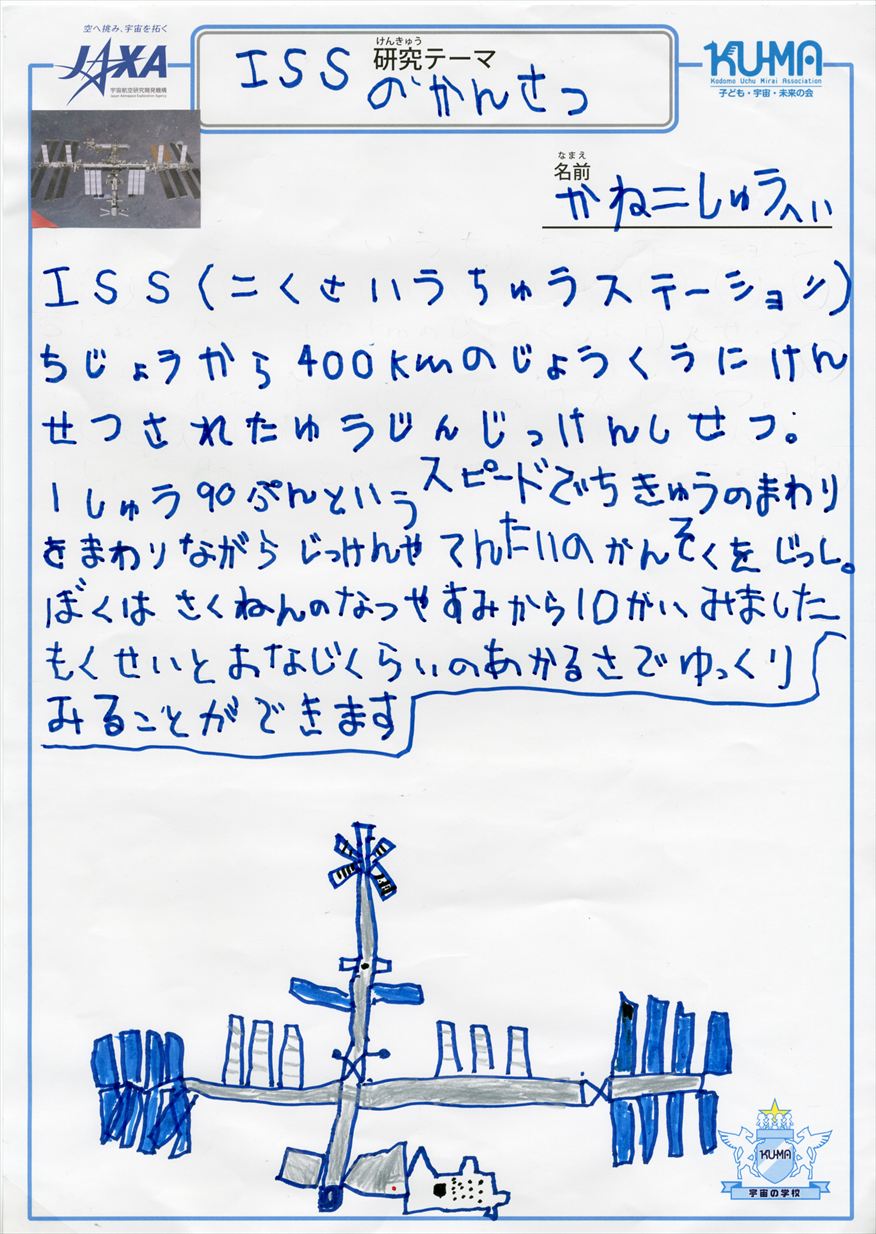 空へ挑み、宇宙を拓く
JAXA
宇宙航空研究開発機構
Japan Aerospace Exploration Agency
けんきゅう
研究テーマ
ISS
のかんさつ
KU-MA
Kodomo Uchu Mirai Association
子ども・宇宙・未来の会
なまえ
名前
かねこしゅうへい
ISS(こくさいうちゅうステーション)
ちじょうから400kmのじょうくうにけん
せつされたゆうじんじっけんしせつ。
1しゅう90ぷんというスピードでちきゅうのまわり
をまわりながらじっけんやてんたいのかんそくをじっし。
ぼくはさくねんのなつやすみから10かいみました
もくせいとおなじくらいのあかるさでゆっくり
みることができます
KU-MA
宇宙の学校